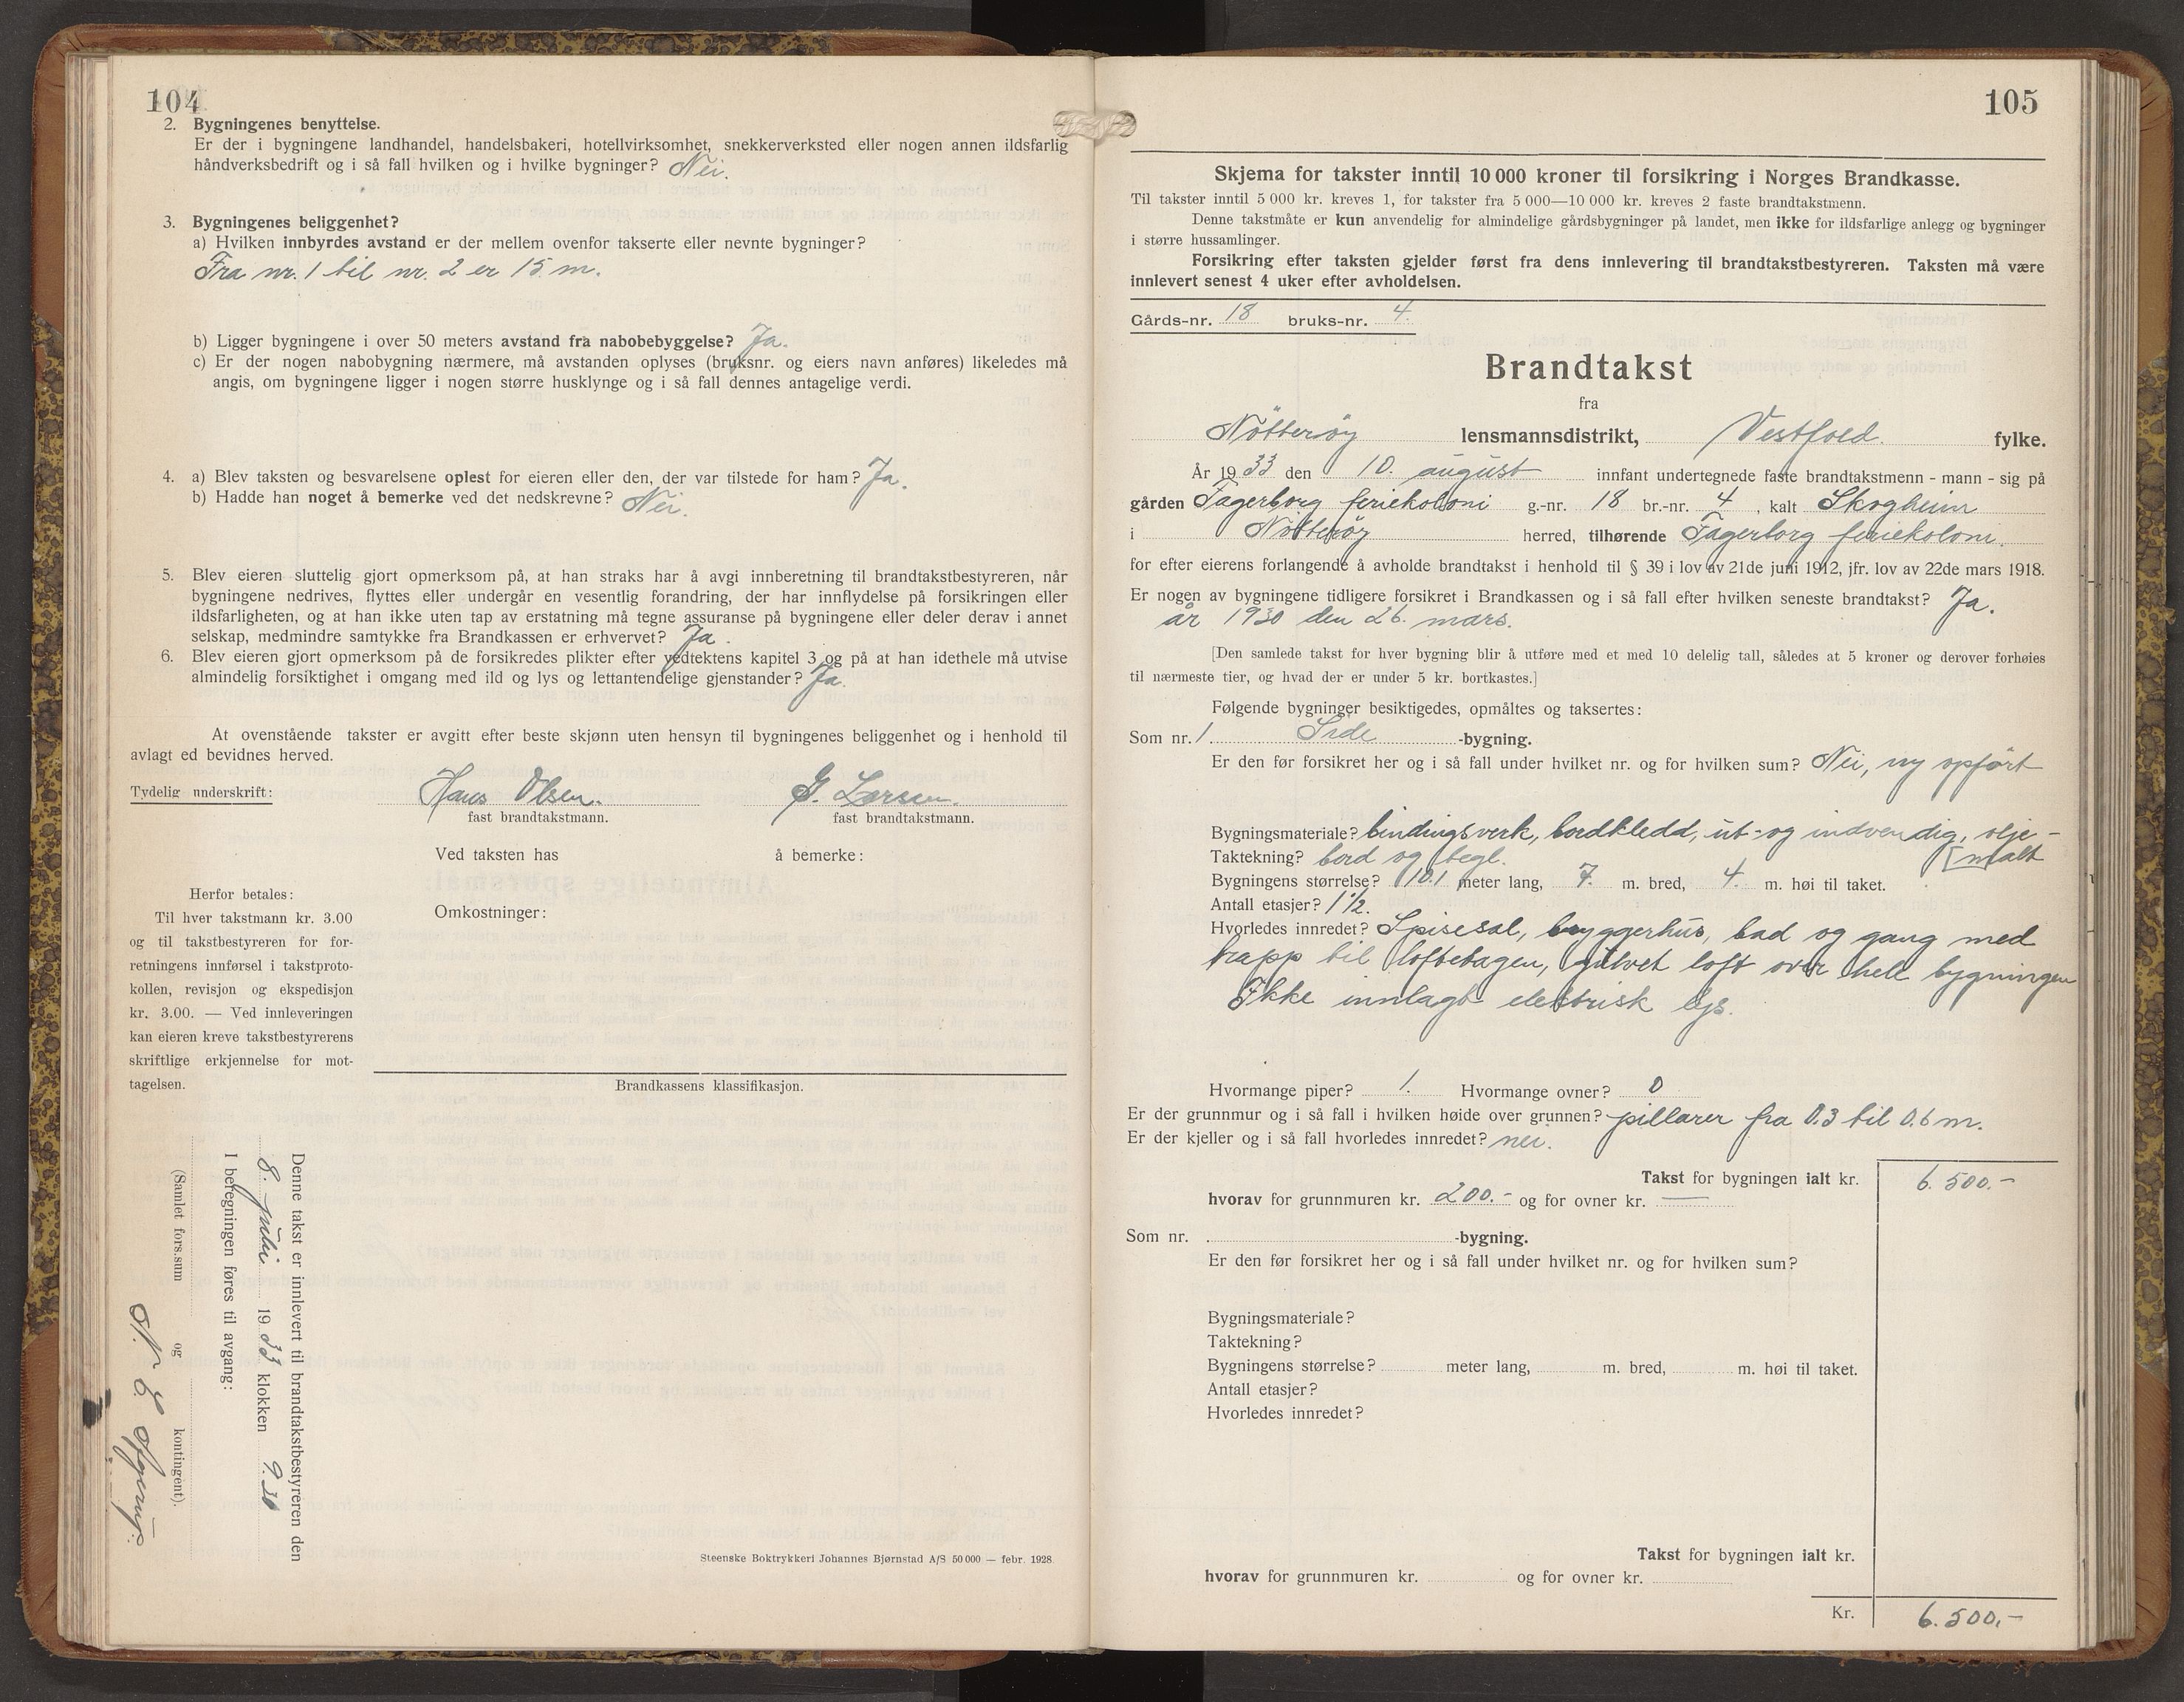 104
2. Bygningenes benyttelse.
Er der i bygningene landhandel, handelsbakeri, hotellvirksomhet, snekkerverksted eller nogen annen ildsfarlig
håndverksbedrift og i så fall hvilken og i hvilke bygninger? Nei.
3. Bygningenes beliggenhet?
a) Hvilken innbyrdes avstand er der mellem ovenfor takserte eller nevnte bygninger?
Fra nr. 1 til nr. 2 er 15 m.
b) Ligger bygningene i over 50 meters avstand fra nabobebyggelse? Ja.
c) Er der nogen nabobygning nærmere, må avstanden oplyses (bruksnr. og eiers navn anføres) likeledes må
angis, om bygningene ligger i nogen større husklynge og i så fall dennes antagelige verdi.
4. a) Blev taksten og besvarelsene oplest for eieren eller den, der var tilstede for ham? Ja.
b) Hadde han noget å bemerke ved det nedskrevne? Nei.
5. Blev eieren sluttelig gjort opmerksom på, at han straks har å avgi innberetning til brandtakstbestyreren, når
bygningene nedrives, flyttes eller undergår en vesentlig forandring, der har innflydelse på forsikringen eller
ildsfarligheten, og at han ikke uten tap av erstatning må tegne assuranse på bygningene eller deler derav i annet
selskap, medmindre samtykke fra Brandkassen er erhvervet? Ja.
6. Blev eieren gjort opmerksom på de forsikredes plikter efter vedtektens kapitel 3 og på at han idethele må utvise
almindelig forsiktighet i omgang med ild og lys og lettantendelige gjenstander? Ja.
At ovenstående takster er avgitt efter beste skjønn uten hensyn til bygningenes beliggenhet og i henhold til
avlagt ed bevidnes herved.
Tydelig underskrift: Hans Olsen. G. Larsen.
fast brandtakstmann. fast brandtakstmann.
Ved taksten has å bemerke:
Omkostninger:
Herfor betales:
Til hver takstmann kr. 3.00
og til takstbestyreren for for-
retningens innførsel i takstproto-
kollen, revisjon og ekspedisjon
kr. 3.00. — Ved innleveringen
kan eieren kreve takstbestyrerens
skriftlige erkjennelse for mot-
tagelsen.
Brandkassens klassifikasjon.
Denne takst er innlevert til brandtakstbestyreren den
8. juli 1933 klokken 9.30
I beregningen føres til avgang:
(Samlet fors.sum og kontingent).
Steenske Boktrykkeri Johannes Bjørnstad A/S 50 000 — febr. 1928.
105
Skjema for takster inntil 10 000 kroner til forsikring i Norges Brandkasse.
Til takster inntil 5 000 kr. kreves 1, for takster fra 5 000—10 000 kr. kreves 2 faste brandtakstmenn.
Denne takstmåte er kun anvendelig for almindelige gårdsbygninger på landet, men ikke for ildsfarlige anlegg og bygninger
i større hussamlinger.
Forsikring efter taksten gjelder først fra dens innlevering til brandtakstbestyreren. Taksten må være
innlevert senest 4 uker efter avholdelsen.
Gårds-nr. 18 bruks-nr. 4.
Brandtakst
fra
Nötteröy lensmannsdistrikt, Vestfold. fylke.
År 1933 den 10. august innfant undertegnede faste brandtakstmenn - mann - sig på
gården Fagerborg feriekoloni g.-nr. 18 br.-nr. 4, kalt Skogheim
i Nötteröy herred, tilhørende Fagerborg feriekoloni.
for efter eierens forlangende å avholde brandtakst i henhold til § 39 i lov av 21de juni 1912, jfr. lov av 22de mars 1918.
Er nogen av bygningene tidligere forsikret i Brandkassen og i så fall efter hvilken seneste brandtakst? Ja.
år 1930 den 26. mars.
[Den samlede takst for hver bygning blir å utføre med et med 10 delelig tall, således at 5 kroner og derover forhøies
til nærmeste tier, og hvad der er under 5 kr. bortkastes.]
Følgende bygninger besiktigedes, opmåltes og taksertes:
Som nr. 1 Side -bygning.
Er den før forsikret her og i så fall under hvilket nr. og for hvilken sum? Nei, ny opfört
Bygningsmateriale? bindingsverk, bordkledd, ut- og indvendig, olje-
[malt
Taktekning? bord og tegl.
Bygningens størrelse? 10.1 meter lang, 7. m. bred, 4. m. høi til taket.
Antall etasjer? 1 1/2.
Hvorledes innredet? Spisesal, bryggerhus, bad og gang med
trapp til loftetagen, gulvet loft over hele bygningen
Ikke innlagt elektrisk lys.
Hvormange piper? 1. Hvormange ovner? 0
Er der grunnmur og i så fall i hvilken høide over grunnen? pillarer fra 0.3 til 0.6 m.
Er der kjeller og i så fall hvorledes innredet? nei.
Takst for bygningen ialt kr. 6.500.-
hvorav for grunnmuren kr. 200.- og for ovner kr. —
Som nr. -bygning.
Er den før forsikret her og i så fall under hvilket nr. og for hvilken sum?
Bygningsmateriale?
Taktekning?
Bygningens størrelse? meter lang, m. bred, m. høi til taket.
Antall etasjer?
Hvorledes innredet?
Takst for bygningen ialt kr.
hvorav for grunnmuren kr. og for ovner kr.
Kr. 6.500,-